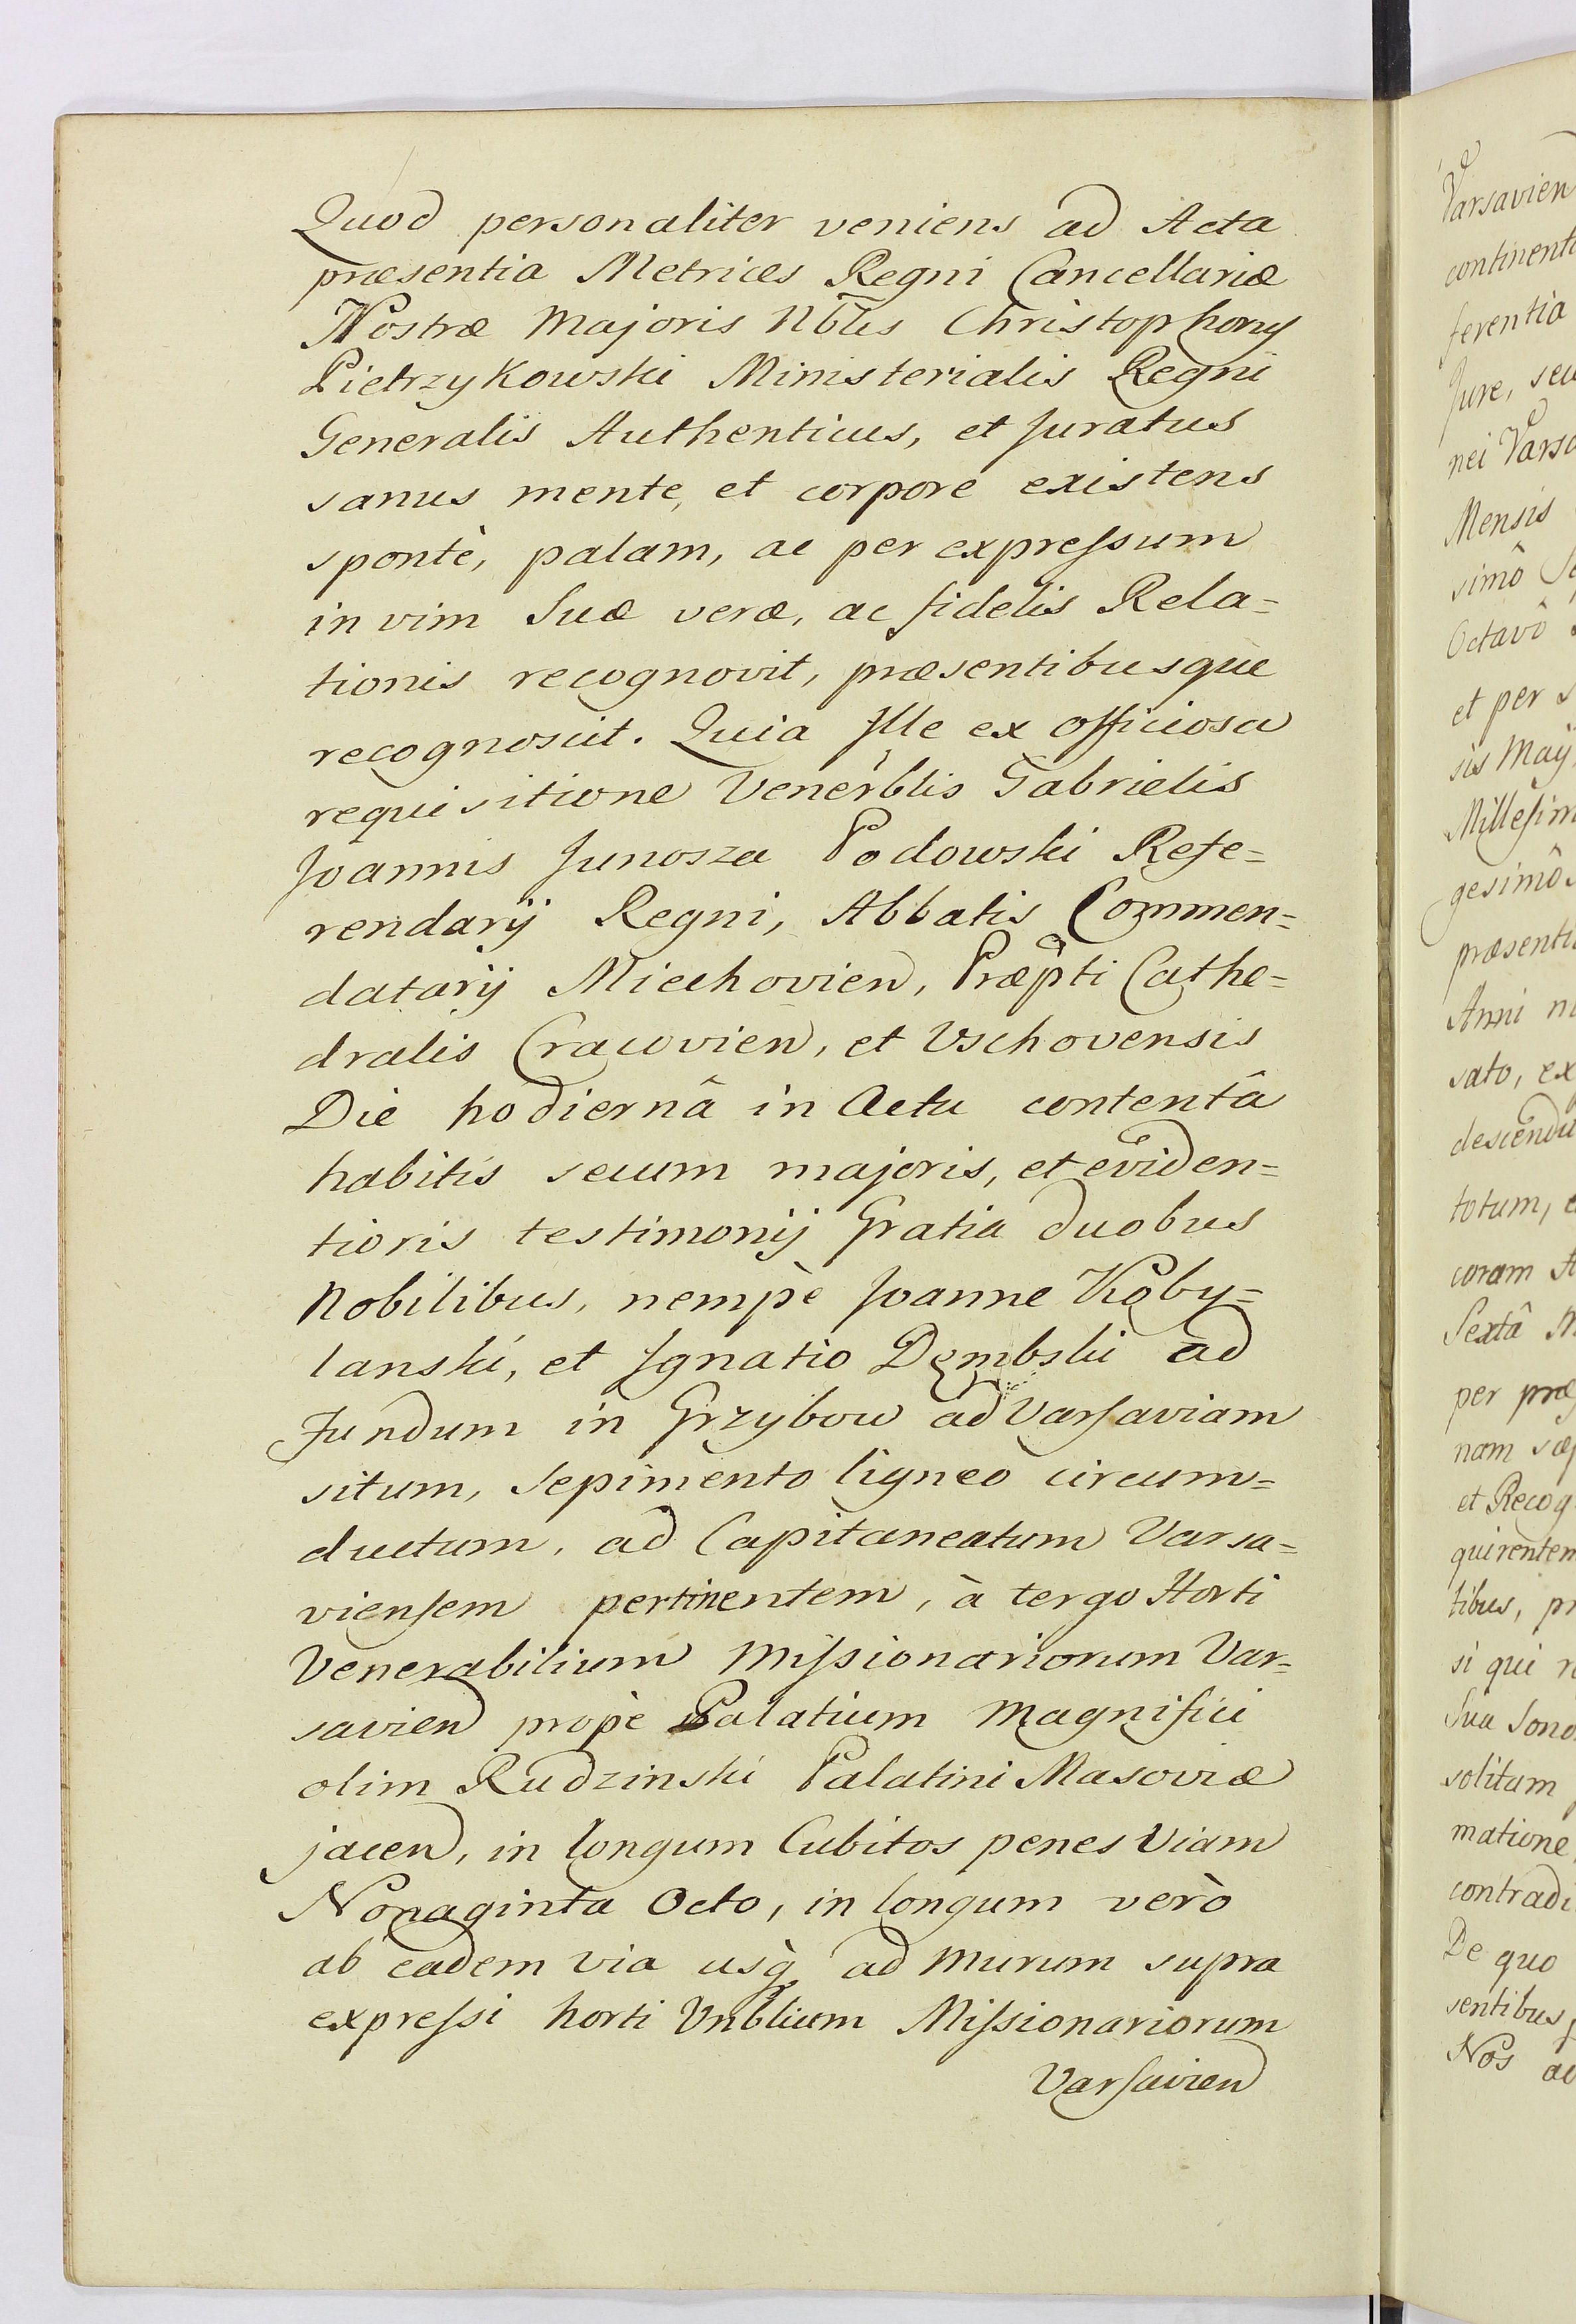 Quod personaliter veniens ad Acta
præsentia Metrices Regni Cancellariæ
Nostræ Majoris Nbl̃is Christophorus
Pietrzykowski Ministerialis Regni
Generalis Authenticus, et Juratus
sanus mente, et corpore existens
spontè, palam, ac per expreſsum
in vim Suæ veræ, ac fidelis Rela=
tionis recognovit, præsentibusque
recognoscit. Quia Ille ex officiosa
requisitione Venerblis Gabrielis
Joannis Junosza Podowski Refe=
rendarij Regni, Abbatis Commen=
datarij Miechovien, Præpti Cathe=
dralis Cracovien, et Vschovensis
Die hodiernâ in Actu contentâ
habitis secum majoris, et eviden=
tioris testimonij Gratia duobus
Nobilibus, nempè Joanne Koby=
lanski, et Ignatio Dembski ad
Fundum in Grzybow ad Varſaviam
situm, Sepimento ligneo circum=
ductum, ad Capitaneatum Varsa=
vienſem pertinentem, à tergo Horti
Venerabilium Miſsionariorum Var=
savien prope Palatium Magnifici
olim Rudzinski Palatini Masoviæ
jacen, in longum Cubitos penes Viam
Nonaginta Octo, in longum verò
ab eadem via usq̀ ad Murum supra
expreſsi horti Vnblium Miſsionariorum
Varſavien
Varsavien
continent
ferentia
Jure, seu
nei Varsa
Mensis
simô
Octavô
et per
sis Maij
Milleſim
gesimô
præsenti
Anni
sato, ex
descendu
totum,
coram
Sextâ
per præ
nam
et Recog
quirentem
tibus,
si qui
Sua Sono
solitam
matione,
contradi
De quo
sentibus
Nos